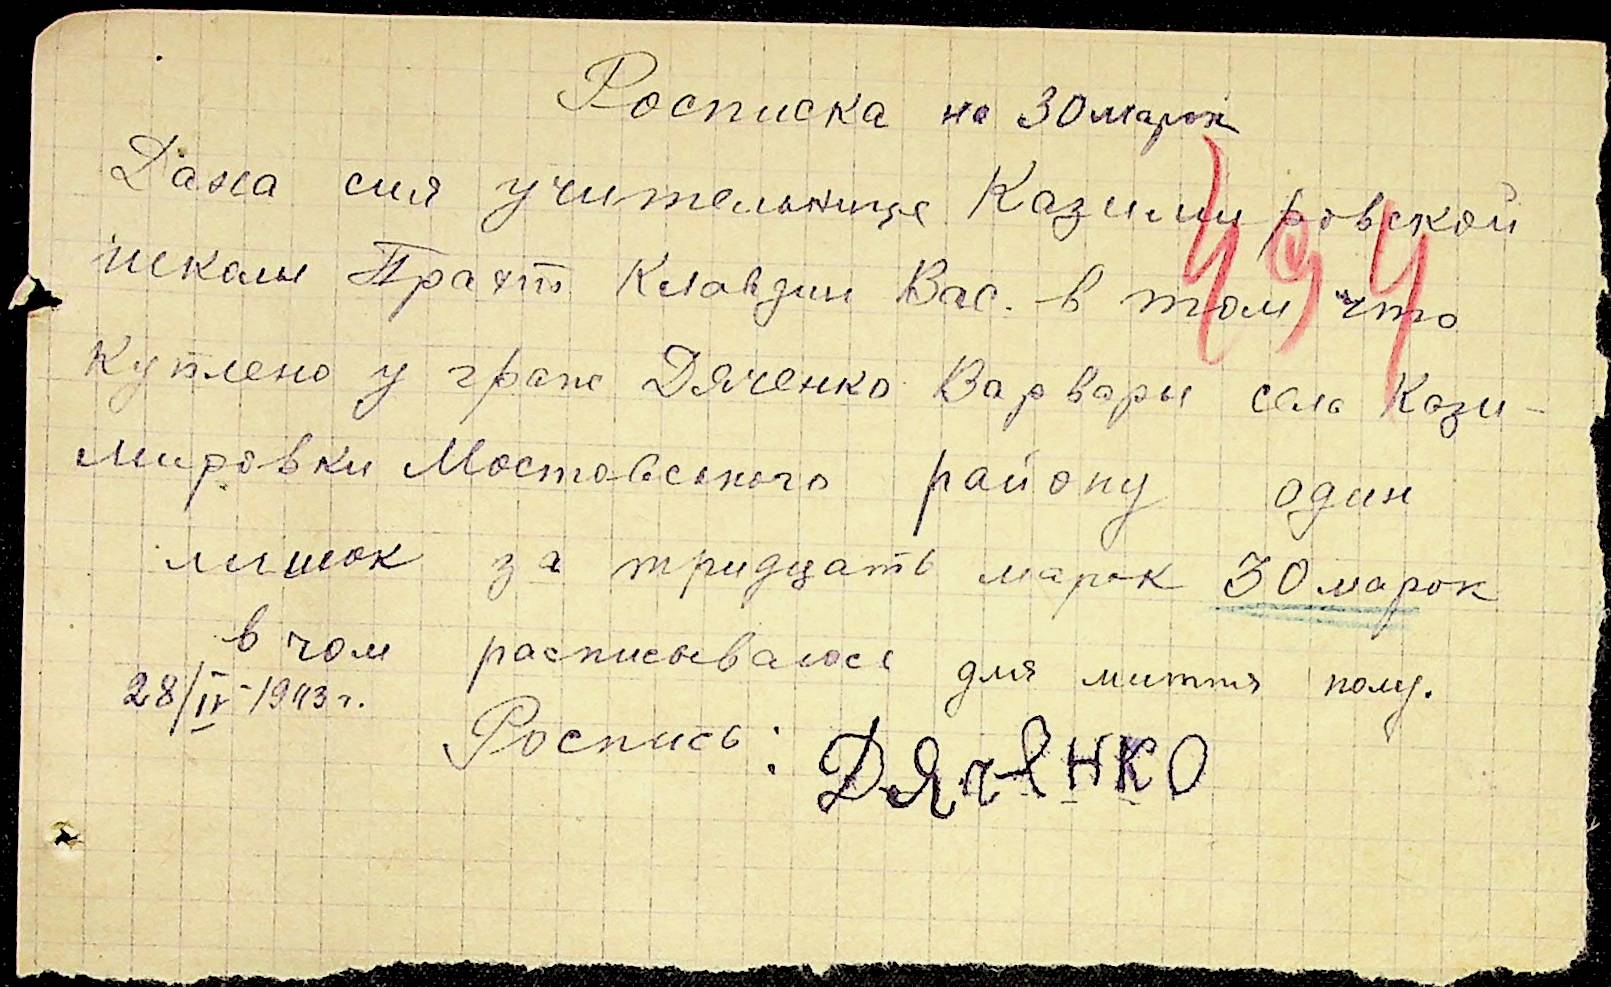 Росписка на 30 марок
Дана сия учительнице Казимировской
школы Клавдии Вас. в том, что
куплено у граж Дяченко Варвары села Кази-
мировки Мостовського району один
мишок за тридцать марок 30 марок
в чом расписываюсь для миття полу.
28/IV-1943 г.
Роспись: ДЯЧЕНКО